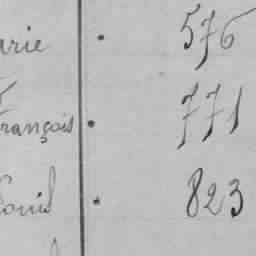 arie . 576
François . 771
Louis . 823